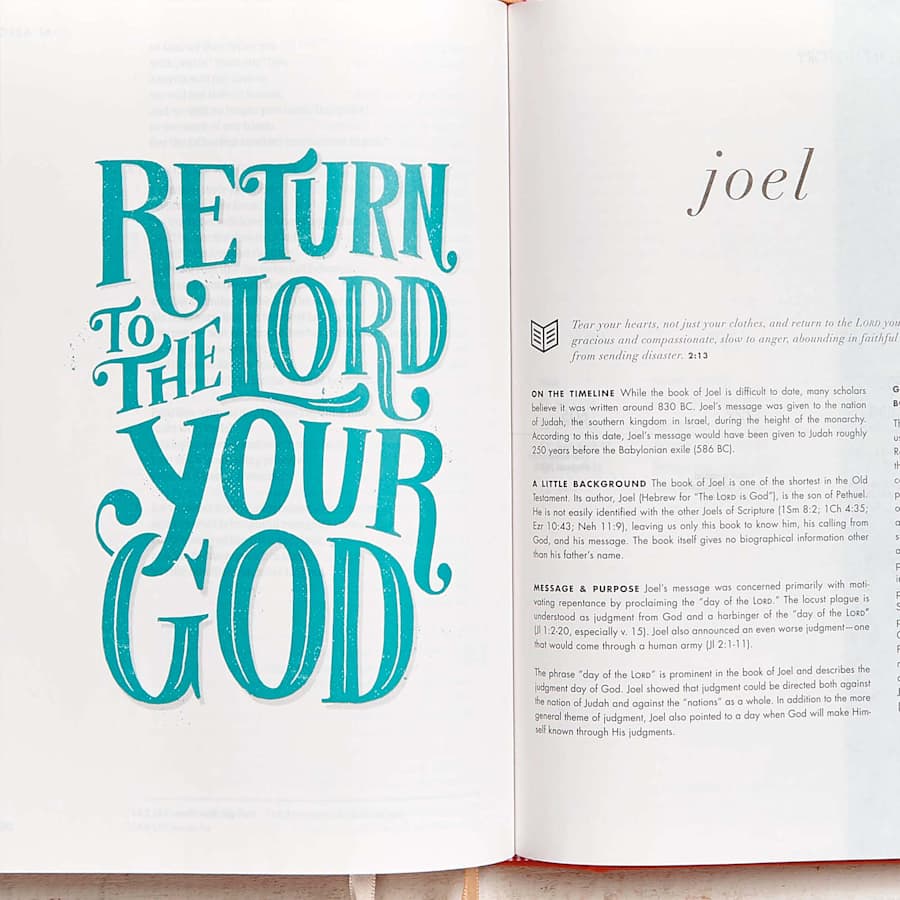 RETURN
TO THE LORD
YOUR
GOD
joel
Tear your hearts, not just your clothes, and return to the LORD you
gracious and compassionate, slow to anger, abounding in faithful
from sending disaster. 2:13
ON THE TIMELINE While the book of Joel is difficult to date, many scholars
believe it was written around 830 BC. Joel's message was given to the nation
of Judah, the southern kingdom in Israel, during the height of the monarchy.
According to this date, Joel's message would have been given to Judah roughly
250 years before the Babylonian exile (586 BC).
A LITTLE BACKGROUND The book of Joel is one of the shortest in the Old
Testament. Its author, Joel (Hebrew for "The LORD is God"), is the son of Pethuel.
He is not easily identified with the other Joels of Scripture (1Sm 8:2; 1Ch 4:35;
Ezr 10:43; Neh 11:9), leaving us only this book to know him, his calling from
God, and his message. The book itself gives no biographical information other
than his father's name.
MESSAGE & PURPOSE Joel's message was concerned primarily with moti-
vating repentance by proclaiming the "day of the LORD." The locust plague is
understood as judgment from God and a harbinger of the "day of the LORD"
(Jl 1:2-20, especially v. 15). Joel also announced an even worse judgment—one
that would come through a human army (Jl 2:1-11).
The phrase "day of the LORD" is prominent in the book of Joel and describes the
judgment day of God. Joel showed that judgment could be directed both against
the nation of Judah and against the "nations" as a whole. In addition to the more
general theme of judgment, Joel also pointed to a day when God will make Him-
self known through His judgments.